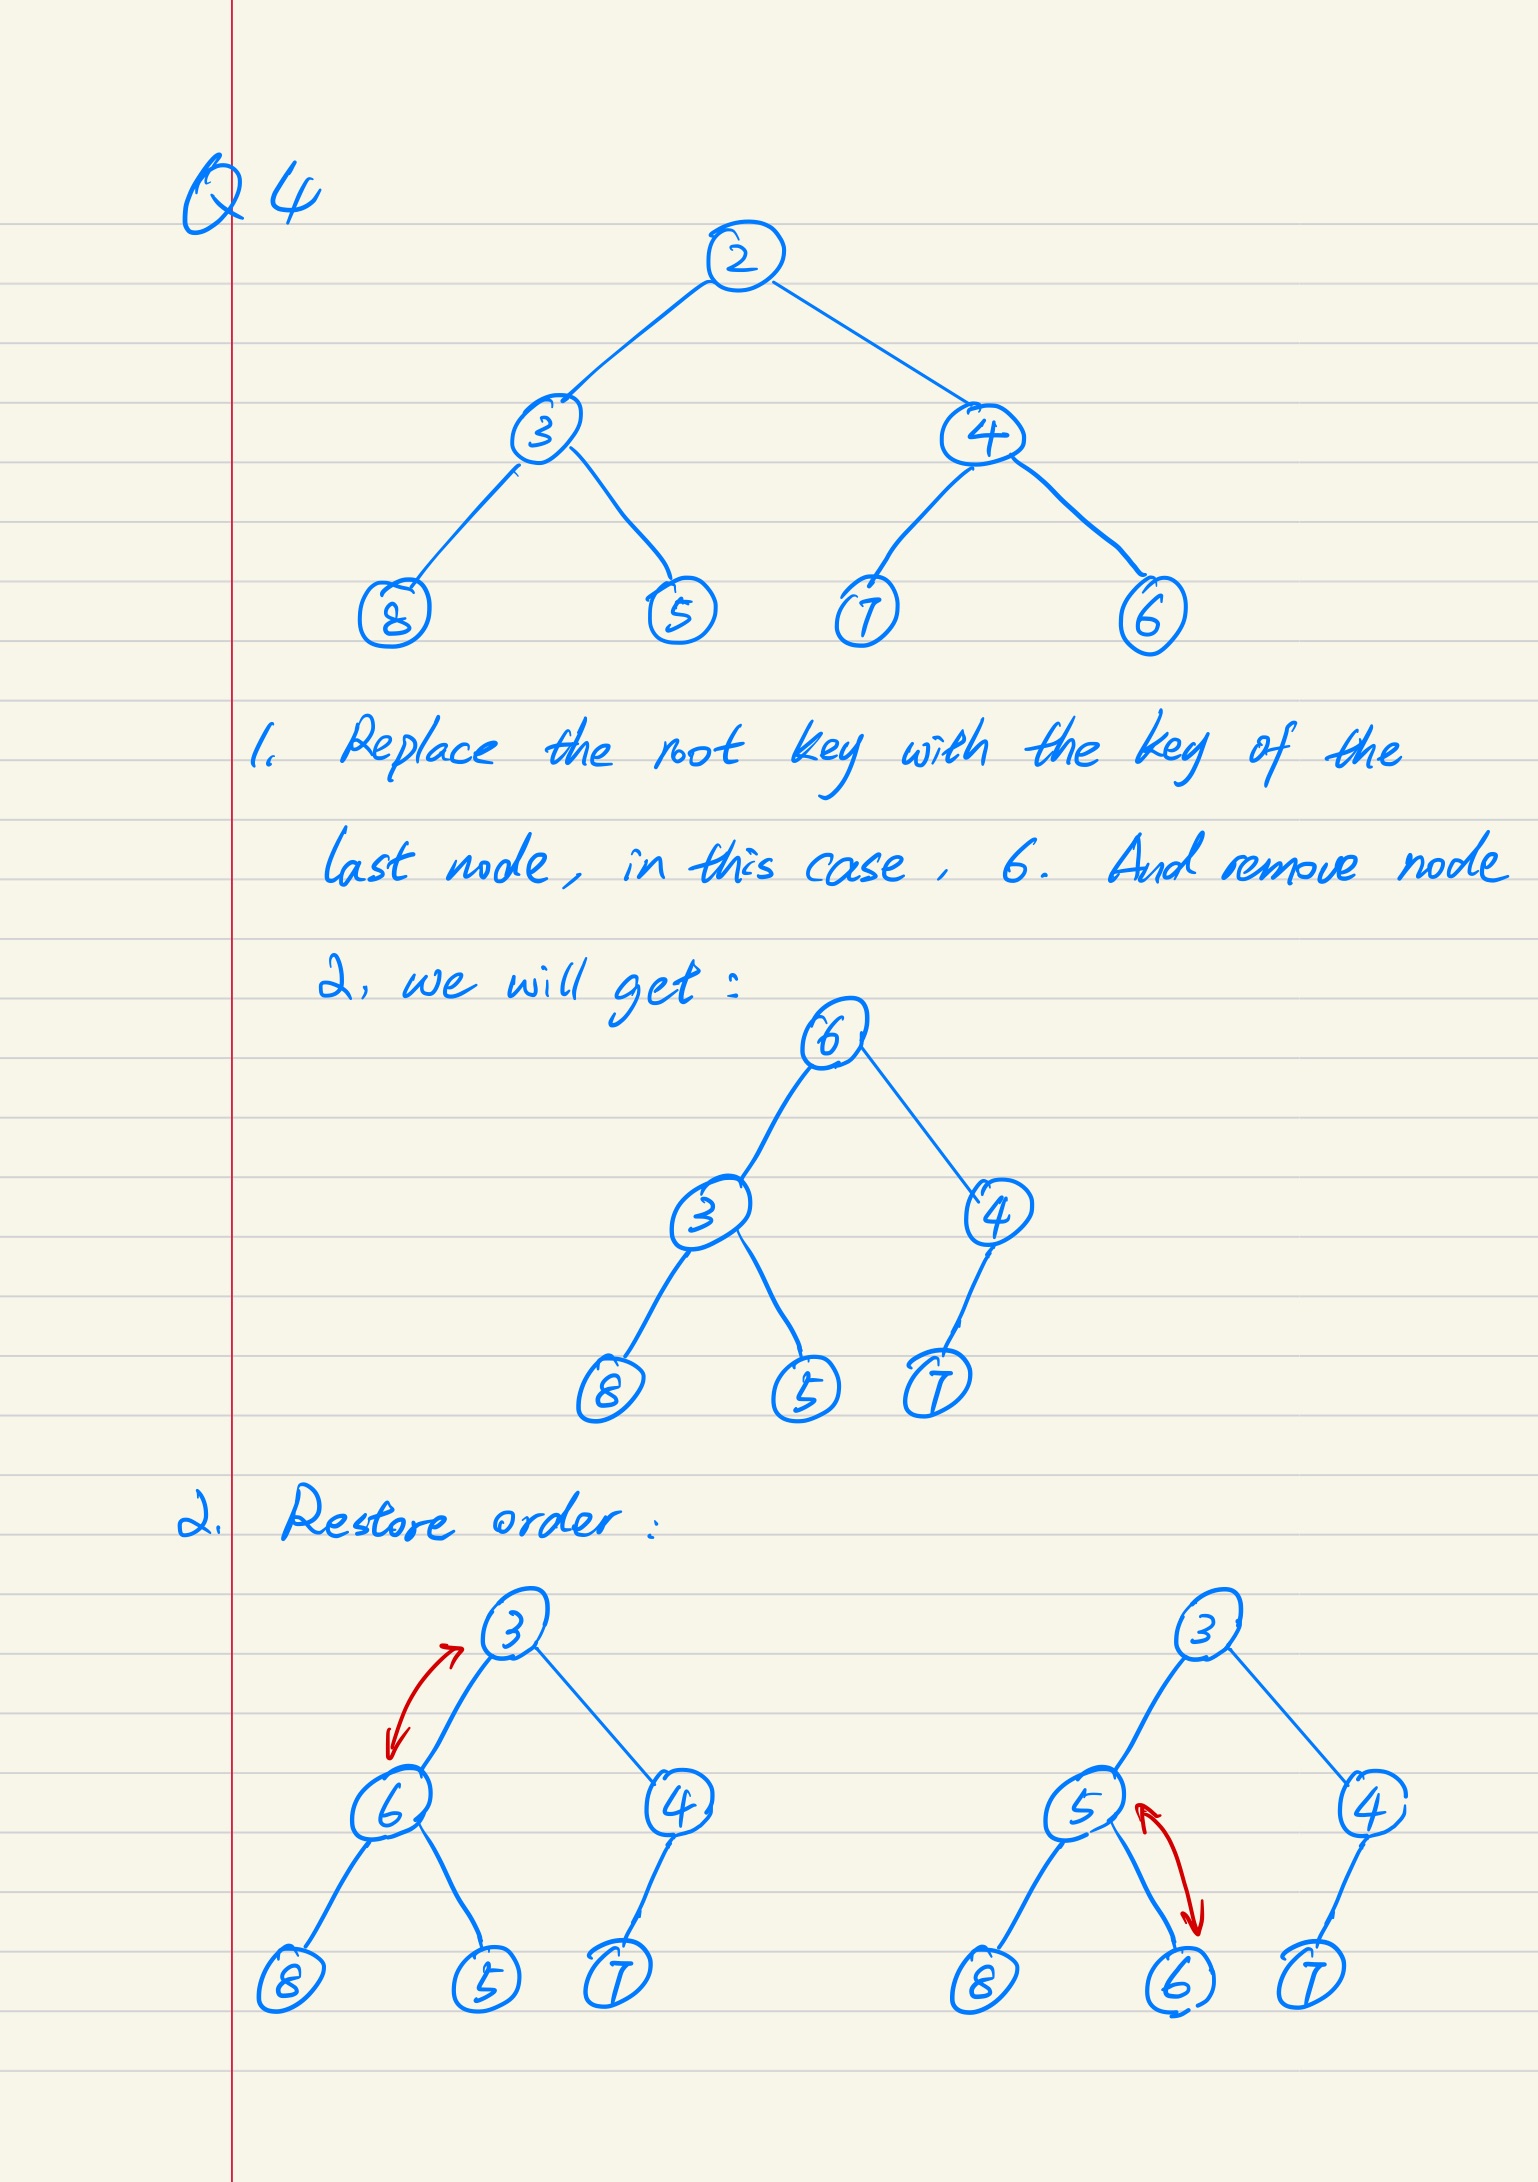 Q4
2
3 4
8 5 7 6
1. Replace the root key with the key of the
last node, in this case, 6. And remove node
2, we will get:
6
3 4
8 5 7
2. Restore order:
3 3
6 4 5 4
8 5 7 8 6 7